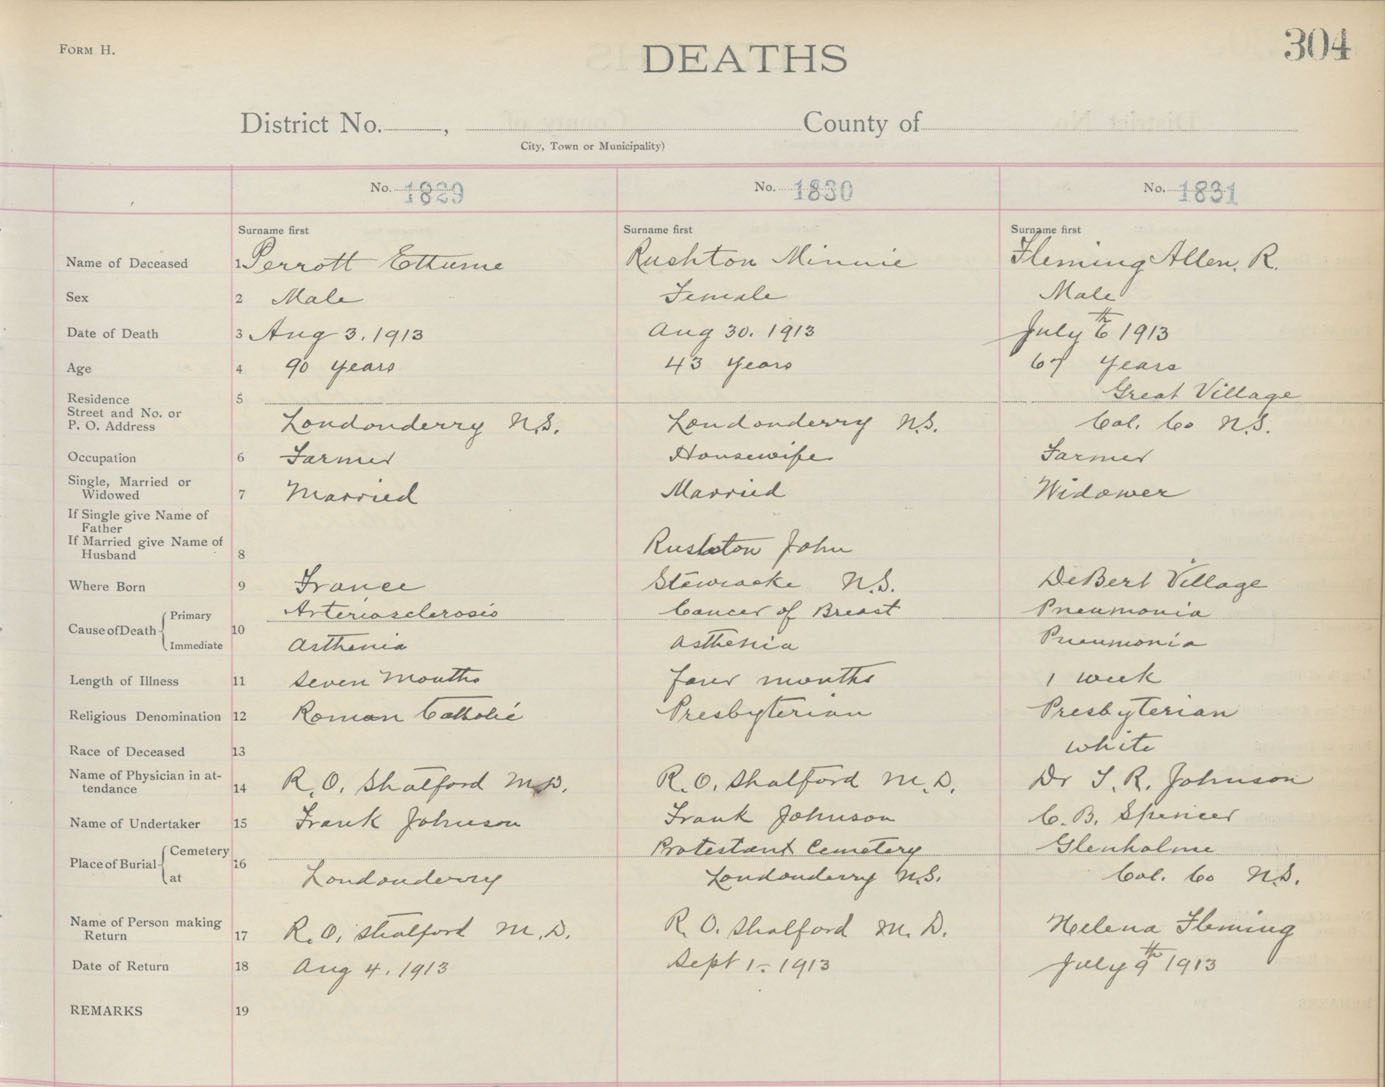 FORM H.
DEATHS
304
District No. , County of
City, Town or Municipality)
No. 1829 No. 1830 No. 1831
Surname first Surname first Surname first
Name of Deceased 1 Perrott Ethume Rushton Minnie Fleming Allen. R.
Sex 2 Male Female Male
Date of Death 3 Aug 3. 1913 Aug 30. 1913 July 6th 1913
Age 4 90 years 43 years 67 years
Residence 5 Great Village
Street and No. or
P. O. Address Londonderry N.S. Londonderry N.S. Col. Co N.S.
Occupation 6 Farmer Housewife Farmer
Single, Married or
Widowed 7 Married Married Widower
If Single give Name of
Father
If Married give Name of
Husband 8 Rushton John
Where Born 9 France Stewiacke N.S. DeBert Village
Cause of Death Primary 10 Arteriosclerosis Cancer of Breast Pneumonia
Immediate Asthenia Asthenia Pneumonia
Length of Illness 11 Seven Months four months 1 week
Religious Denomination 12 Roman Catholic Presbyterian Presbyterian
Race of Deceased 13 white
Name of Physician in at-
tendance 14 R. O. Shatford M.D. R. O. Shatford M. D. Dr T. R. Johnson
Name of Undertaker 15 Frank Johnson Frank Johnson C. B. Spencer
Place of Burial Cemetery 16 Protestant Cemetery Glenholme
at Londonderry Londonderry N.S. Col. Co N.S.
Name of Person making
Return 17 R. O. Shatford M. D. R. O. Shatford M. D. Helena Fleming
Date of Return 18 Aug 4. 1913 Sept 1. 1913 July 9th 1913
REMARKS 19